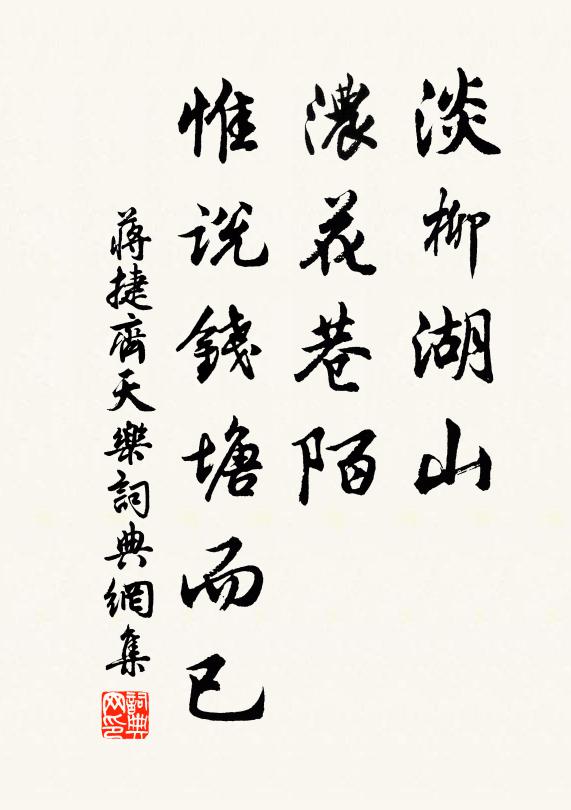 淡柳湖山
濃花巷陌
惟說錢塘而已
蔣捷齊天樂詞典網集
詞典网印